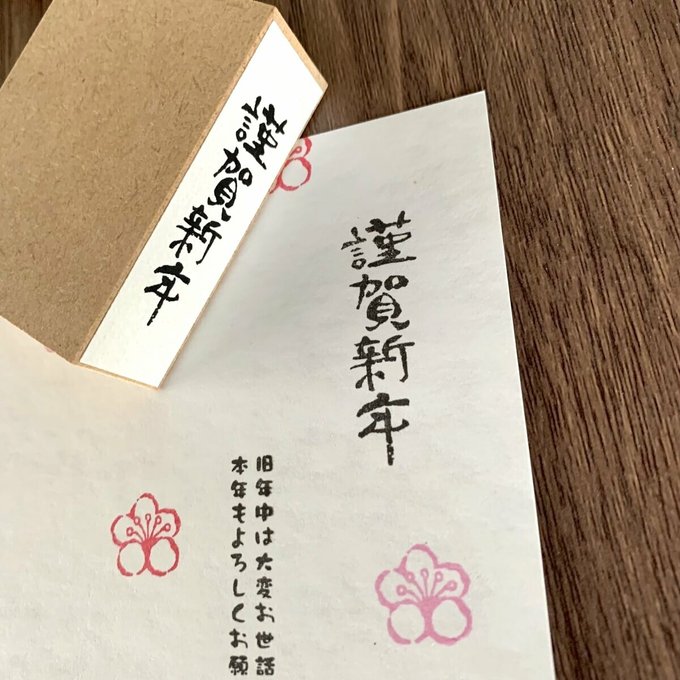 謹賀新年
謹賀新年
旧年中は大変お世話
本年もよろしくお願